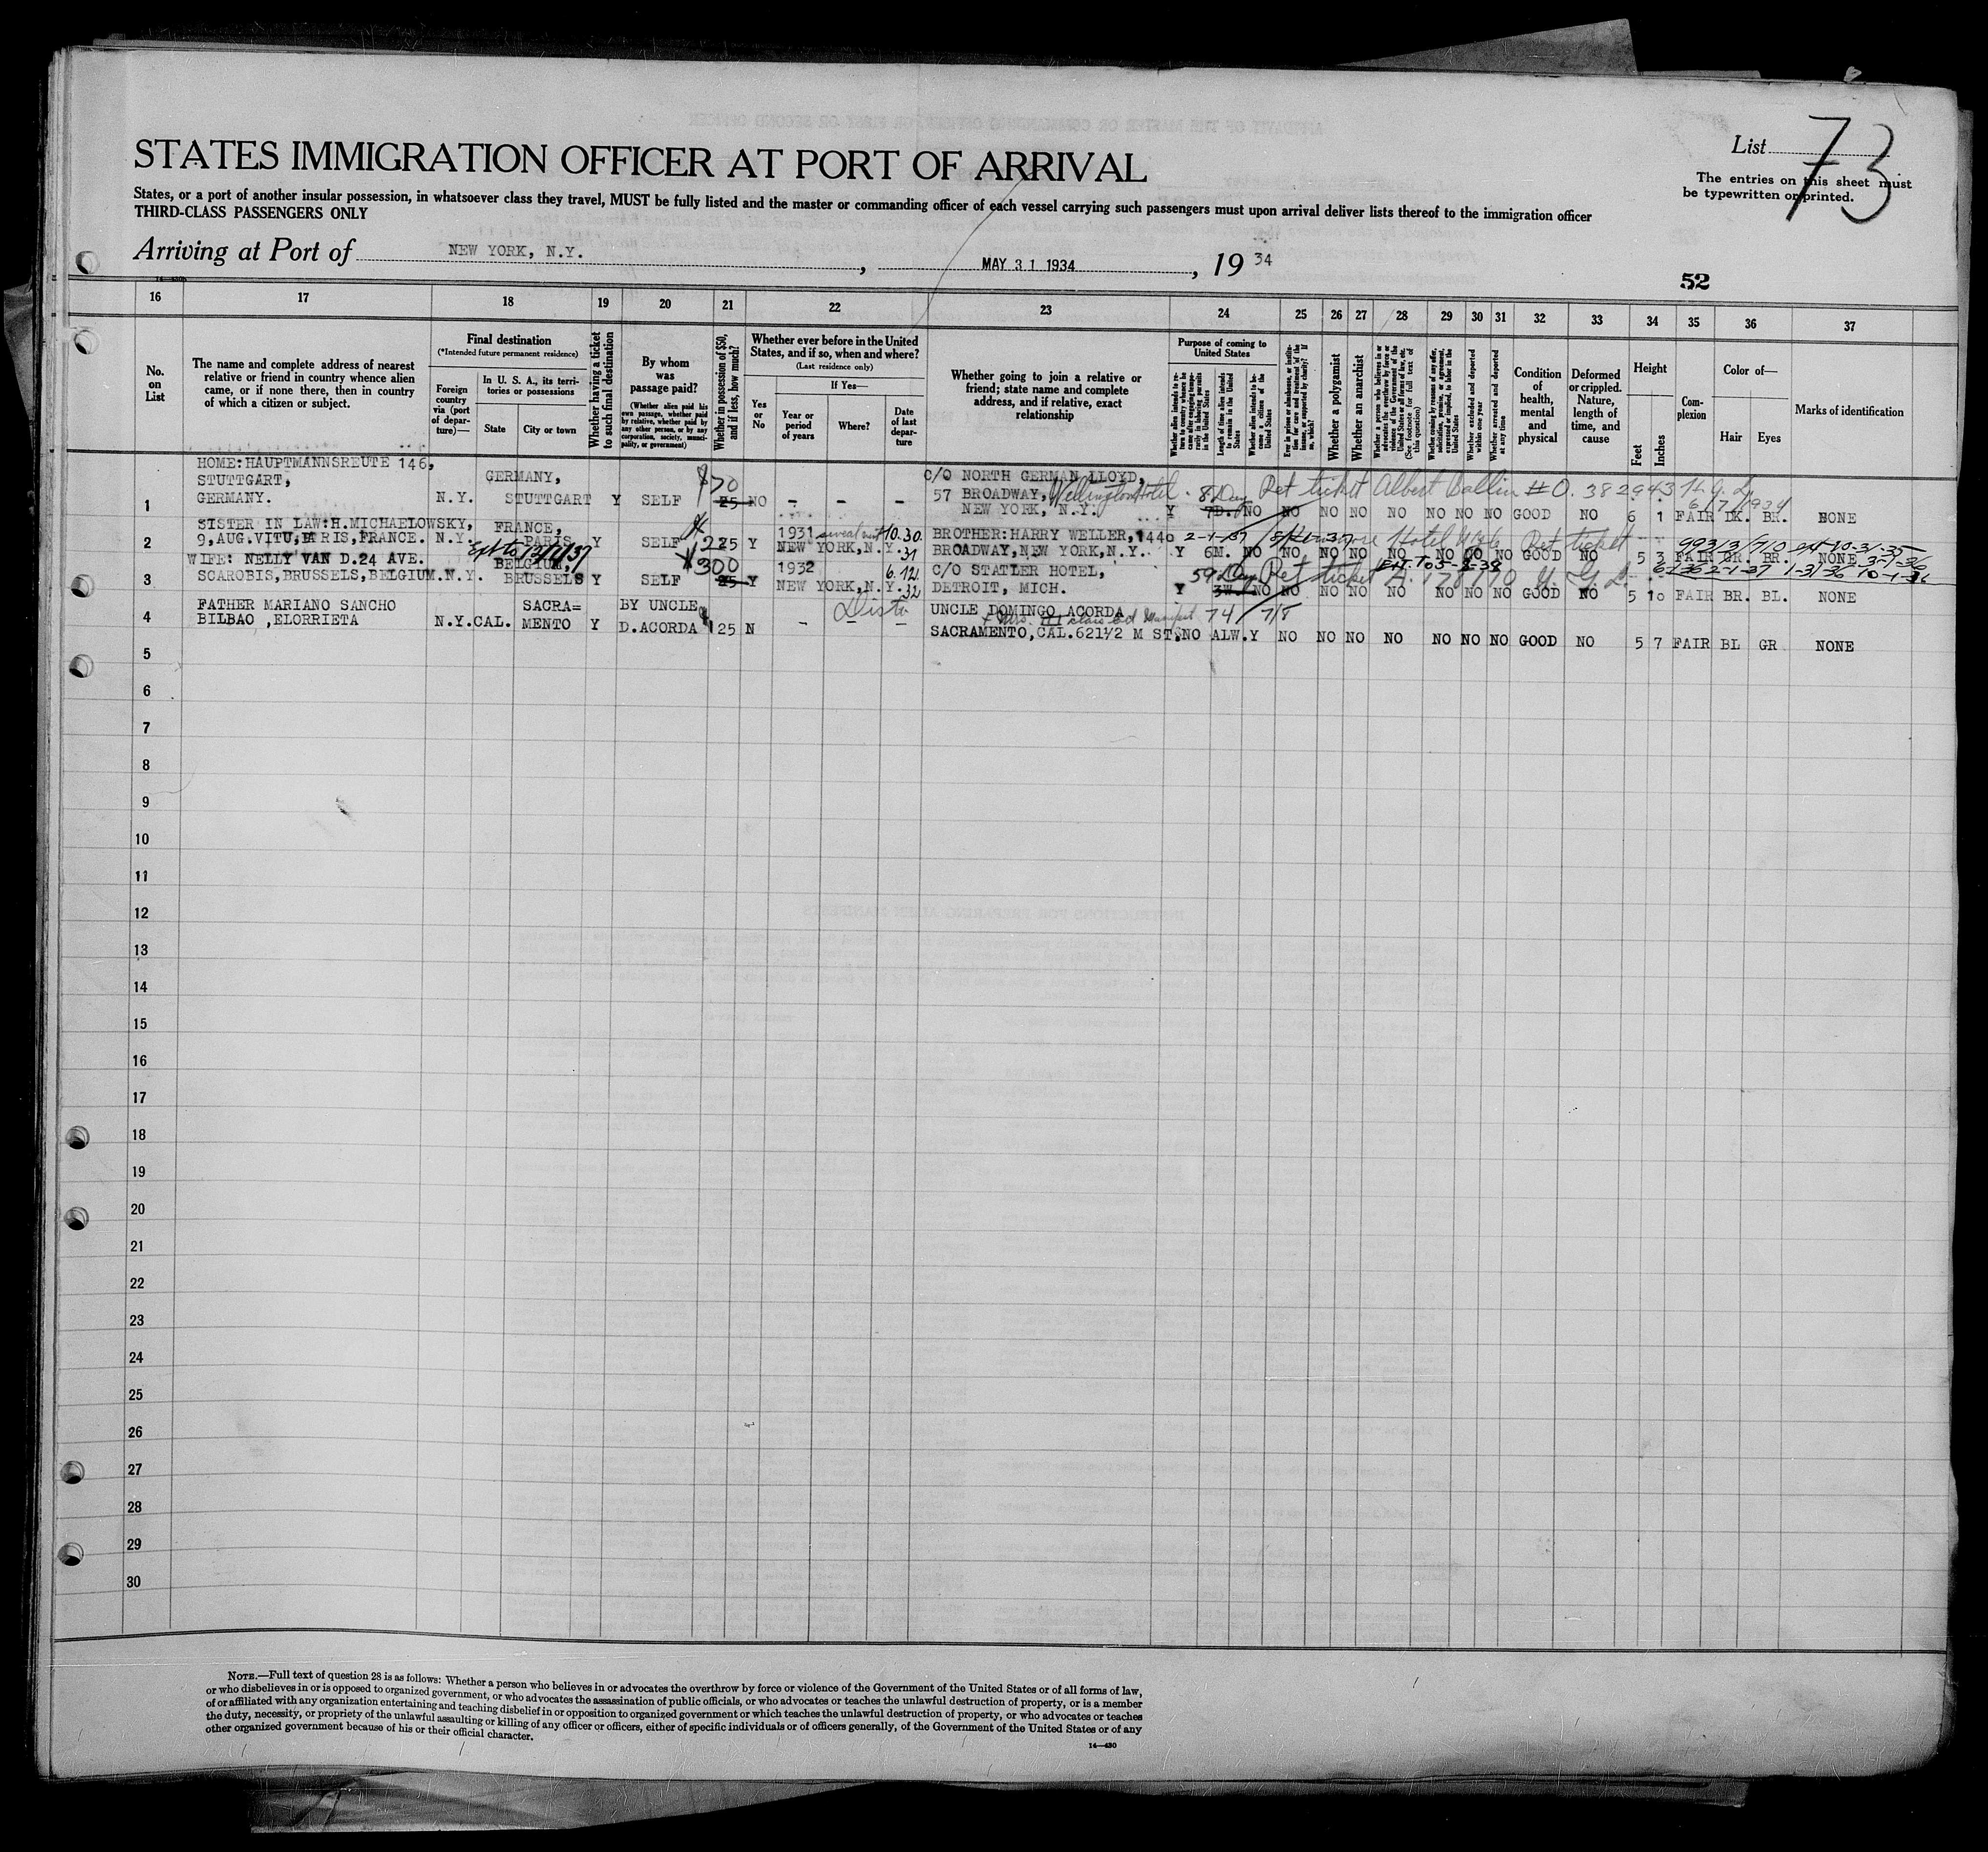 List 73
STATES IMMIGRATION OFFICER AT PORT OF ARRIVAL
The entries on this sheet must
be typewritten or printed.
States, or a port of another insular possession, in whatsoever class they travel, MUST be fully listed and the master or commanding officer of each vessel carrying such passengers must upon arrival deliver lists thereof to the immigration officer
THIRD-CLASS PASSENGERS ONLY
Arriving at Port of NEW YORK, N.Y., MAY 31 1934, 19 34
52
16 17 18 19 20 21 22 23 24 25 26 27 28 29 30 31 32 33 34 35 36 37
No. on List
The name and complete address of nearest
relative or friend in country whence alien
came, or if none there, then in country
of which a citizen or subject.
Final destination
(*Intended future permanent residence)
Foreign country via (port of departure)—
In U. S. A., its territories or possessions
State
City or town
Whether having a ticket to such final destination
By whom was passage paid?
(Whether alien paid his own passage, whether paid by relative, whether paid by any other person, or by any corporation, society, municipality, or government)
Whether in possession of $50, and if less, how much?
Whether ever before in the United States, and if so, when and where?
(Last residence only)
Yes or No
If Yes—
Year or period of years
Where?
Date of last departure
Whether going to join a relative or
friend; state name and complete
address, and if relative, exact
relationship
Purpose of coming to United States
Length of time alien intends to remain in the United States
Whether alien intends to become a citizen of the United States
Whether a polygamist
Whether an anarchist
Whether excluded and deported within one year
Whether arrested and deported at any time
Condition of health, mental and physical
Deformed or crippled. Nature, length of time, and cause
Height
Feet
Inches
Complexion
Color of—
Hair
Eyes
Marks of identification
1
HOME:HAUPTMANNSREUTE 146,
STUTTGART,
GERMANY.
N.Y. GERMANY, STUTTGART Y SELF $70 25 NO – – –
C/O NORTH GERMAN LLOYD,
57 BROADWAY, Wellington Hotel
NEW YORK, N.Y.
8 Day Ret ticket Albert Ballin # 0. 382943
Y 7D. NO NO NO NO NO NO NO NO GOOD NO 6 1 FAIR DK. BR. NONE
2
SISTER IN LAW:H.MICHAELOWSKY,
9,AUG.VITU,PARIS,FRANCE.
N.Y. FRANCE, PARIS Y SELF 225 Y 1931 NEW YORK,N.Y. 10.30.31
BROTHER:HARRY WELLER,1440
BROADWAY,NEW YORK,N.Y.
2-1-37 Hotel Ret ticket
Y 6M. NO NO NO NO NO NO NO NO GOOD NO 5 3 FAIR GR. BR. NONE
Ext to 12/1/37
3
WIFE: NELLY VAN D.24 AVE.
SCAROBIS,BRUSSELS,BELGIUM.
N.Y. BELGIUM, BRUSSELS Y SELF $300 25 Y 1932 NEW YORK,N.Y. 6.12.32
C/O STATLER HOTEL,
DETROIT, MICH.
59 Day Ret ticket
Y 3W. NO NO NO NO NO NO NO NO GOOD NO 5 10 FAIR BR. BL. NONE
4
FATHER MARIANO SANCHO
BILBAO ,ELORRIETA
N.Y. CAL. SACRA=MENTO Y BY UNCLE D.ACORDA $125 N – – –
UNCLE DOMINGO ACORDA
SACRAMENTO,CAL.621½ M ST.
NO ALW. Y NO NO NO NO NO NO NO GOOD NO 5 7 FAIR BL GR NONE
5
6
7
8
9
10
11
12
13
14
15
16
17
18
19
20
21
22
23
24
25
26
27
28
29
30
NOTE.—Full text of question 28 is as follows: Whether a person who believes in or advocates the overthrow by force or violence of the Government of the United States or of all forms of law,
or who disbelieves in or is opposed to organized government, or who advocates the assassination of public officials, or who advocates or teaches the unlawful destruction of property, or is a member
of or affiliated with any organization entertaining and teaching disbelief in or opposition to organized government or which teaches the unlawful destruction of property, or who advocates or teaches
the duty, necessity, or propriety of the unlawful assaulting or killing of any officer or officers, either of specific individuals or of officers generally, of the Government of the United States or of any
other organized government because of his or their official character.
14—430